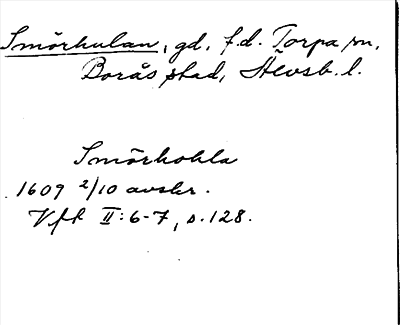 Smörhulan, gd, f.d. Torpa sn,
Borås stad, Älvsb. l.
Smörhohla
1609 2/10 avskr.
Vfk II:6-7, s. 128.